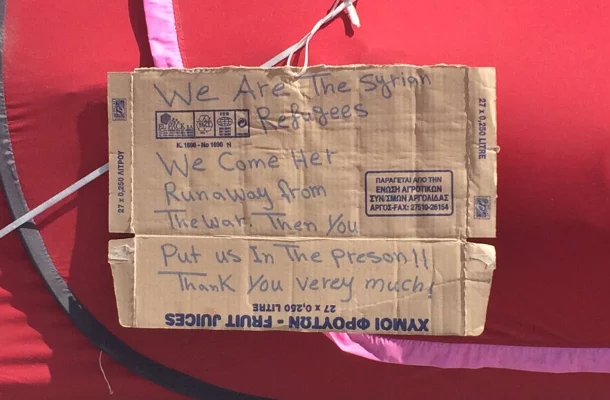 We Are The Syrian
Refugees
K. 1698 - No 1698 H
We Come Her
Runaway from
The war. Then You
Put us In The preson!!
Thank You verey much!
27 x 0,250 ΛΙΤΡΟΥ
27 x 0,250 LITRE
ΠΑΡΑΓΕΤΑΙ ΑΠΟ ΤΗΝ
ΕΝΩΣΗ ΑΓΡΟΤΙΚΩΝ
ΣΥΝ/ΣΜΩΝ ΑΡΓΟΛΙΔΑΣ
ΑΡΓΟΣ-FAX: 27510-26154
27 x 0,250 LITRE
ΧΥΜΟΙ ΦΡΟΥΤΩΝ - FRUIT JUICES